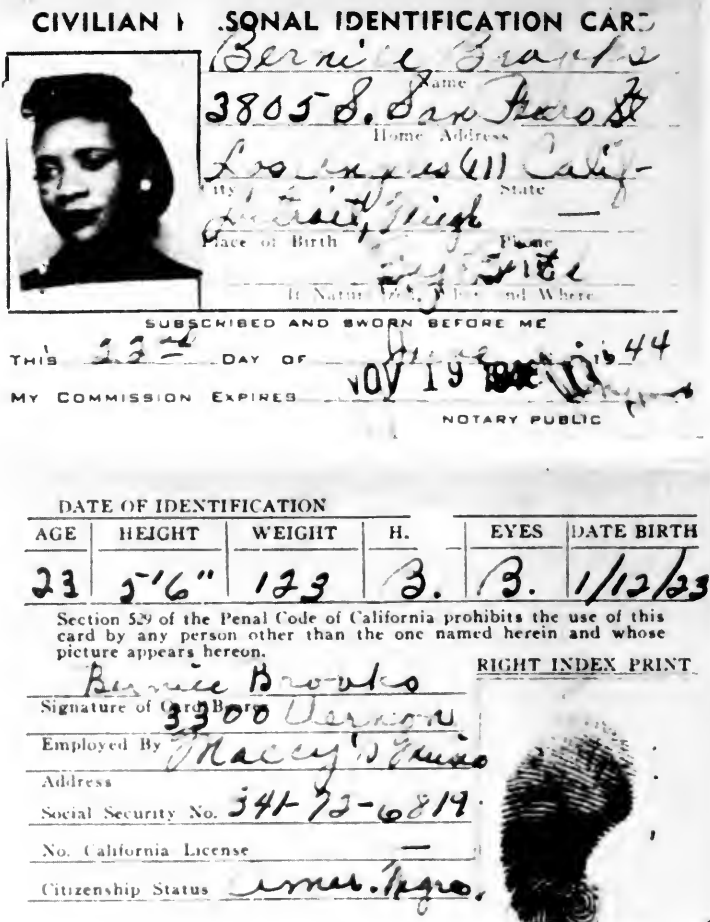 CIVILIAN SONAL IDENTIFICATION CARD
Bernice Brooks
Name
3805 S. San Pedro St
Home Address
Los Angeles (11) Calif-
City State
Detroit, Mich —
Place of Birth Phone
If Where and Where
SUBSCRIBED AND SWORN BEFORE ME
THIS 22nd DAY OF 44
MY COMMISSION EXPIRES NOV 19
NOTARY PUBLIC
DATE OF IDENTIFICATION
AGE HEIGHT WEIGHT H. EYES DATE BIRTH
23 5'6" 123 B. B. 1/12/23
Section 529 of the Penal Code of California prohibits the use of this
card by any person other than the one named herein and whose
picture appears hereon.
RIGHT INDEX PRINT
Bernice Brooks
Signature of Card Bearer
3300 Vernon
Employed By
Address
Social Security No. 341-72-6819
No. California License —
Citizenship Status Amer. Negro.